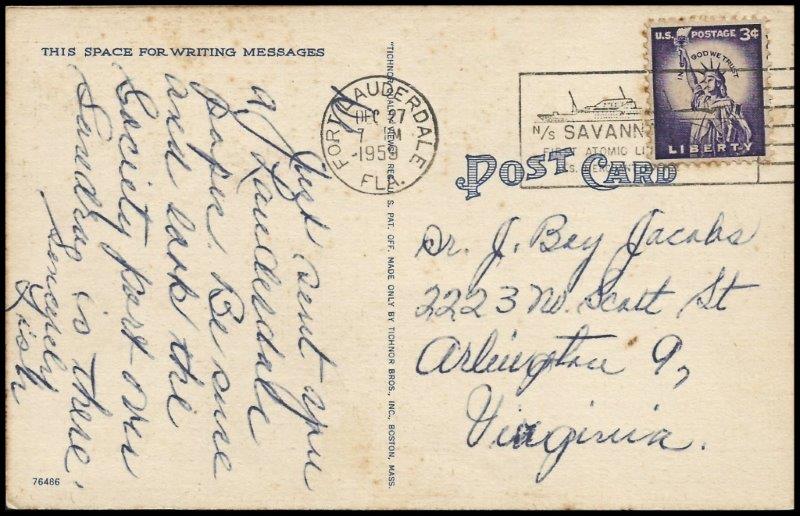 THIS SPACE FOR WRITING MESSAGES
Just sent you
a Lauderdale
paper. Be sure
and look the
Society part over
Sandras is there.
Sincerely
"TICHNOR QUALITY VIEWS," REG. U. S. PAT. OFF. MADE ONLY BY TICHNOR BROS., INC., BOSTON, MASS.
FORT LAUDERDALE
DEC 27
7 PM
1959
FLA.
N/S SAVANN
FIRST ATOMIC
U.S. POSTAGE 3¢
IN GOD WE TRUST
LIBERTY
POST CARD
Dr. J. Bay Jacobs
2223 No. Scott St
Arlington 9,
Virginia.
76486